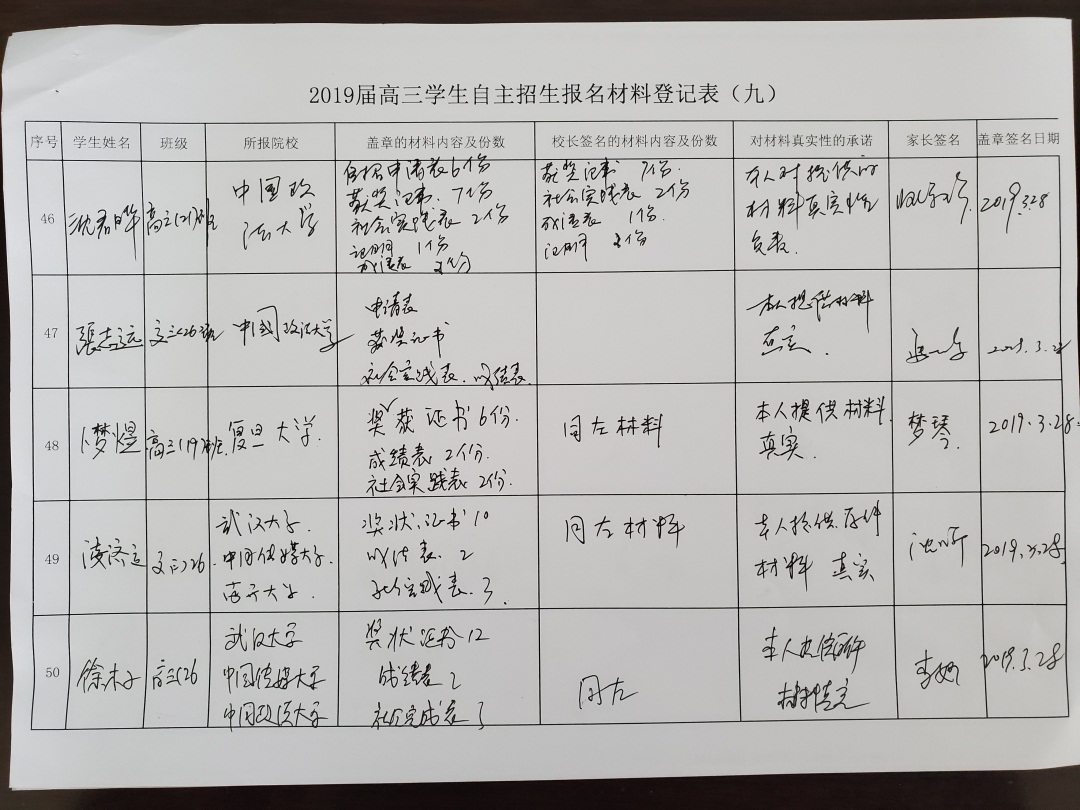 2019届高三学生自主招生报名材料登记表（九）
序号 学生姓名 班级 所报院校 盖章的材料内容及份数 校长签名的材料内容及份数 对材料真实性的承诺 家长签名 盖章签名日期
46
高三(21)班
中国政
法大学
申请表6份
获奖证书 7份
社会实践表 2份
证明 1份
成绩表
获奖证书 7份.
社会实践表 2份
成绩表 1份.
证明 份
本人对提供的
材料真实性
负责.
2019.3.28
47
張志远
文三(26)班
中國政法大学
申请表
获奖证书
社会实践表.成绩表.
本人提供材料
真实.
48
卜梦煜
高三(19)班.
复旦大学.
奖获证书6份.
成绩表 2份.
社会实践表 2份.
同左材料
本人提供材料
真实.
梦琴
2019.3.28.
49
文三26.
武汉大学.
中国传媒大学.
南开大学.
奖状.证书10
成绩表. 2
社会实践表.3.
同左材料
材料 真实
2019.3.28.
50
高三26
武汉大学
中国传媒大学
中国政法大学
奖状证书12
成绩表 2
3
同左
本人
2019.3.28